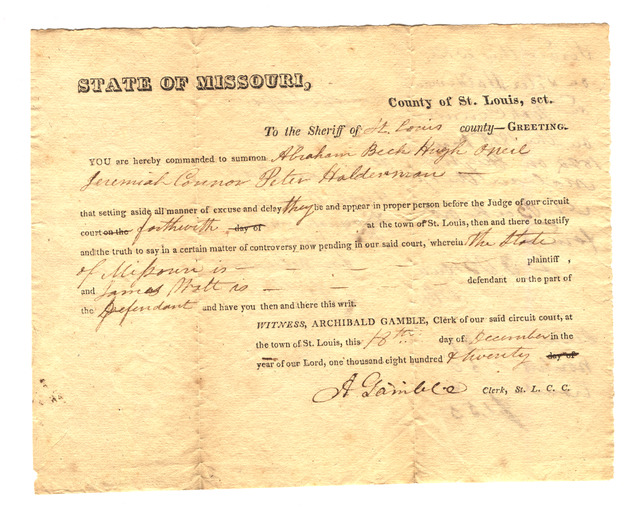 STATE OF MISSOURI,
County of St. Louis, sct.
To the Sheriff of St. Louis county—GREETING.
YOU are hereby commanded to summon Abraham Beck Hugh Oneil
Jeremiah Connor Peter Halderman —
that setting aside all manner of excuse and delay they be and appear in proper person before the Judge of our circuit
court on the forthwith day of at the town of St. Louis, then and there to testify
and the truth to say in a certain matter of controversy now pending in our said court, wherein the State
of Missouri is — — — — — plaintiff ,
and James Watt is — — — — defendant on the part of
the Defendant and have you then and there this writ.
WITNESS, ARCHIBALD GAMBLE, Clerk of our said circuit court, at
the town of St. Louis, this 18th day of December in the
year of our Lord, one thousand eight hundred & twenty day of
A Gamble Clerk, St. L. C. C.